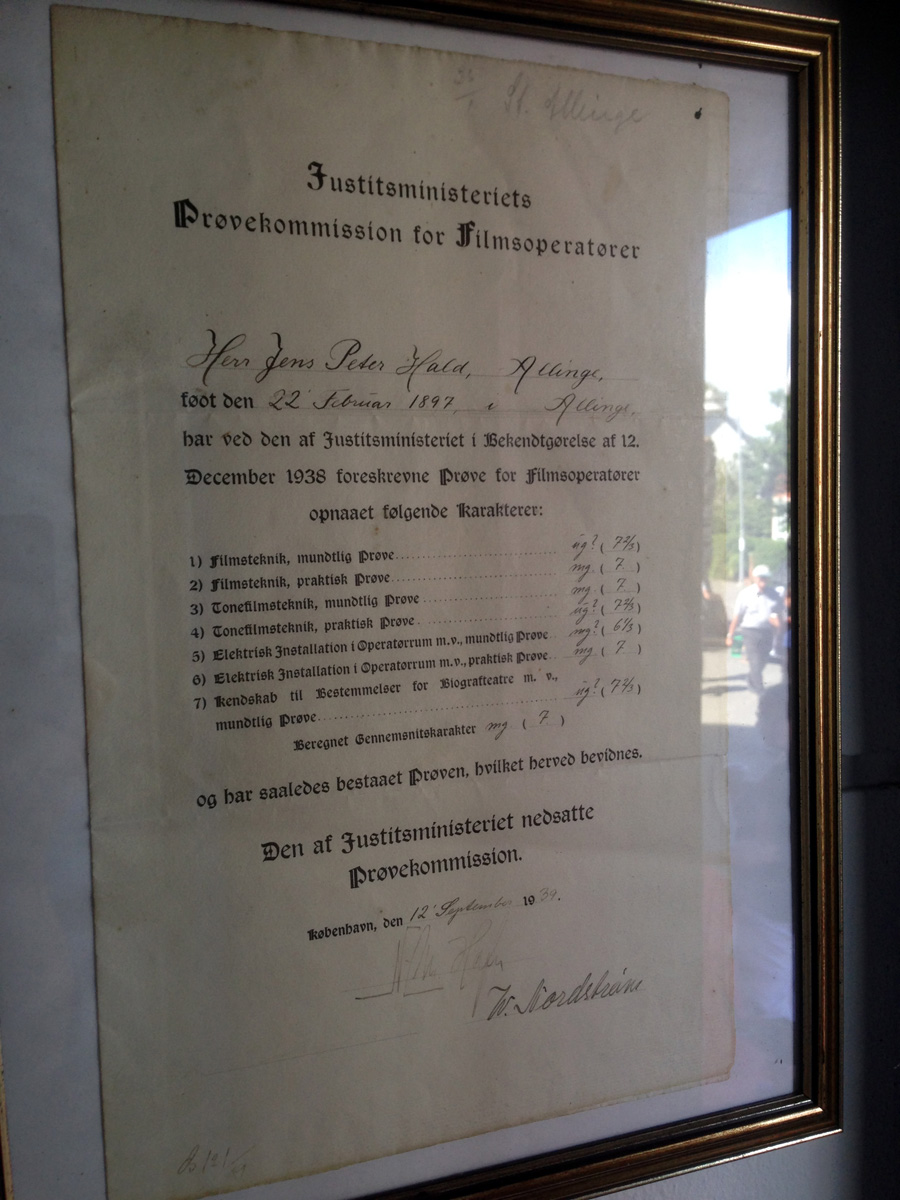 St. Allinge
Justitsministeriets
Prøvekommission for Filmsoperatører
Herr Jens Peter Hald, Allinge,
født den 22' Februar 1897, i Allinge,
har ved den af Justitsministeriet i Bekendtgørelse af 12.
December 1938 foreskrevne Prøve for Filmsoperatører
opnaaet følgende Karakterer:
1) Filmsteknik, mundtlig Prøve ug? ( 7 2/3 )
2) Filmsteknik, praktisk Prøve mg. ( 7 )
3) Tonefilmsteknik, mundtlig Prøve mg ( 7 )
4) Tonefilmsteknik, praktisk Prøve ug? ( 7 2/3 )
5) Elektrisk Installation i Operatørrum m.v., mundtlig Prøve mg? ( 6 1/3 )
6) Elektrisk Installation i Operatørrum m.v., praktisk Prøve mg ( 7 )
7) Kendskab til Bestemmelser for Biografteatre m. v.,
mundtlig Prøve ug? ( 7 2/3 )
Beregnet Gennemsnitskarakter mg ( 7 )
og har saaledes bestaaet Prøven, hvilket herved bevidnes.
Den af Justitsministeriet nedsatte
Prøvekommission.
København, den 12' September 1939.
W. Nordstrøm